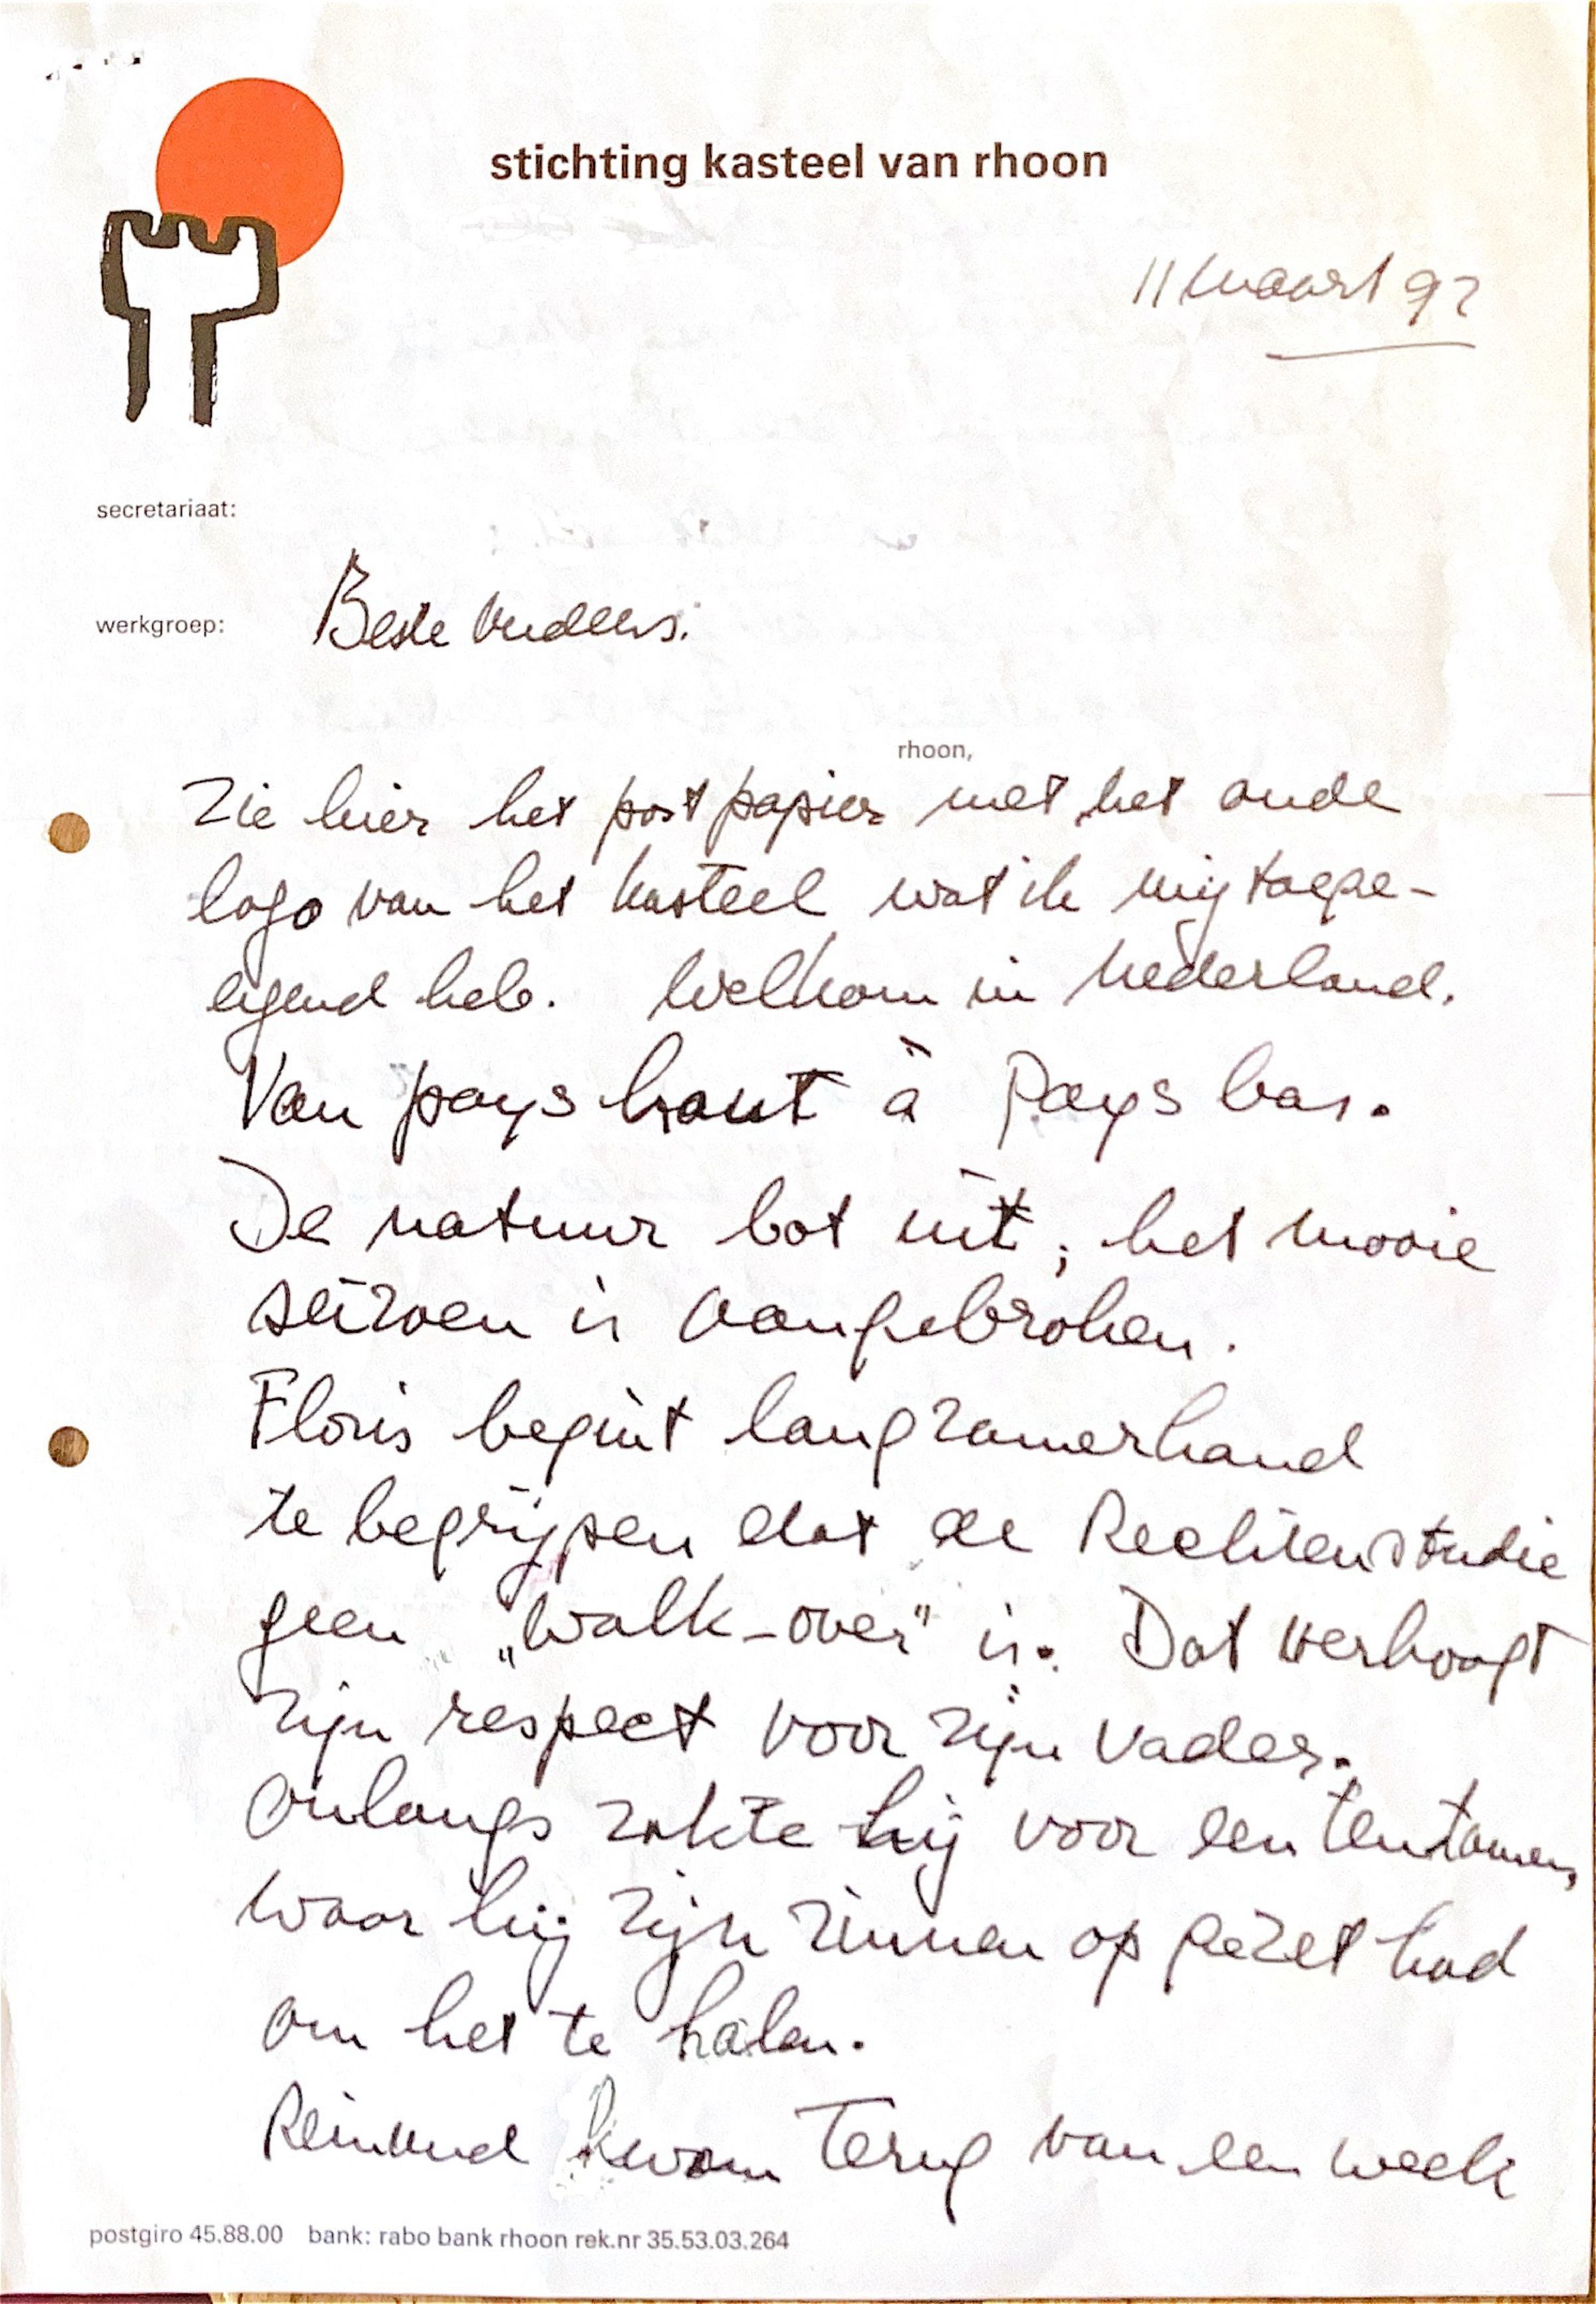 stichting kasteel van rhoon
11 maart 92
secretariaat:
werkgroep:
Beste ouders.
rhoon,
Zie hier het postpapier met het oude
logo van het kasteel wat ik mij toege-
eigend heb. Welkom in Nederland.
Van pays haut à Pays bas.
De natuur bot uit, het mooie
seizoen is aangebroken.
Floris begint langzamerhand
te begrijpen dat de Rechtenstudie
geen "walk-over" is. Dat verhoogt
zijn respect voor zijn vader.
Onlangs zakte hij voor een tentamen,
waar hij zijn zinnen op gezet had
om het te halen.
Reinoud kwam terug van een week
postgiro 45.88.00 bank: rabo bank rhoon rek.nr 35.53.03.264